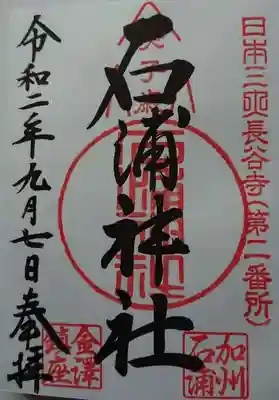 日本三大長谷寺(第二番所)
石浦神社
加州
石浦
令和二年九月七日奉拝
金澤
鎮座